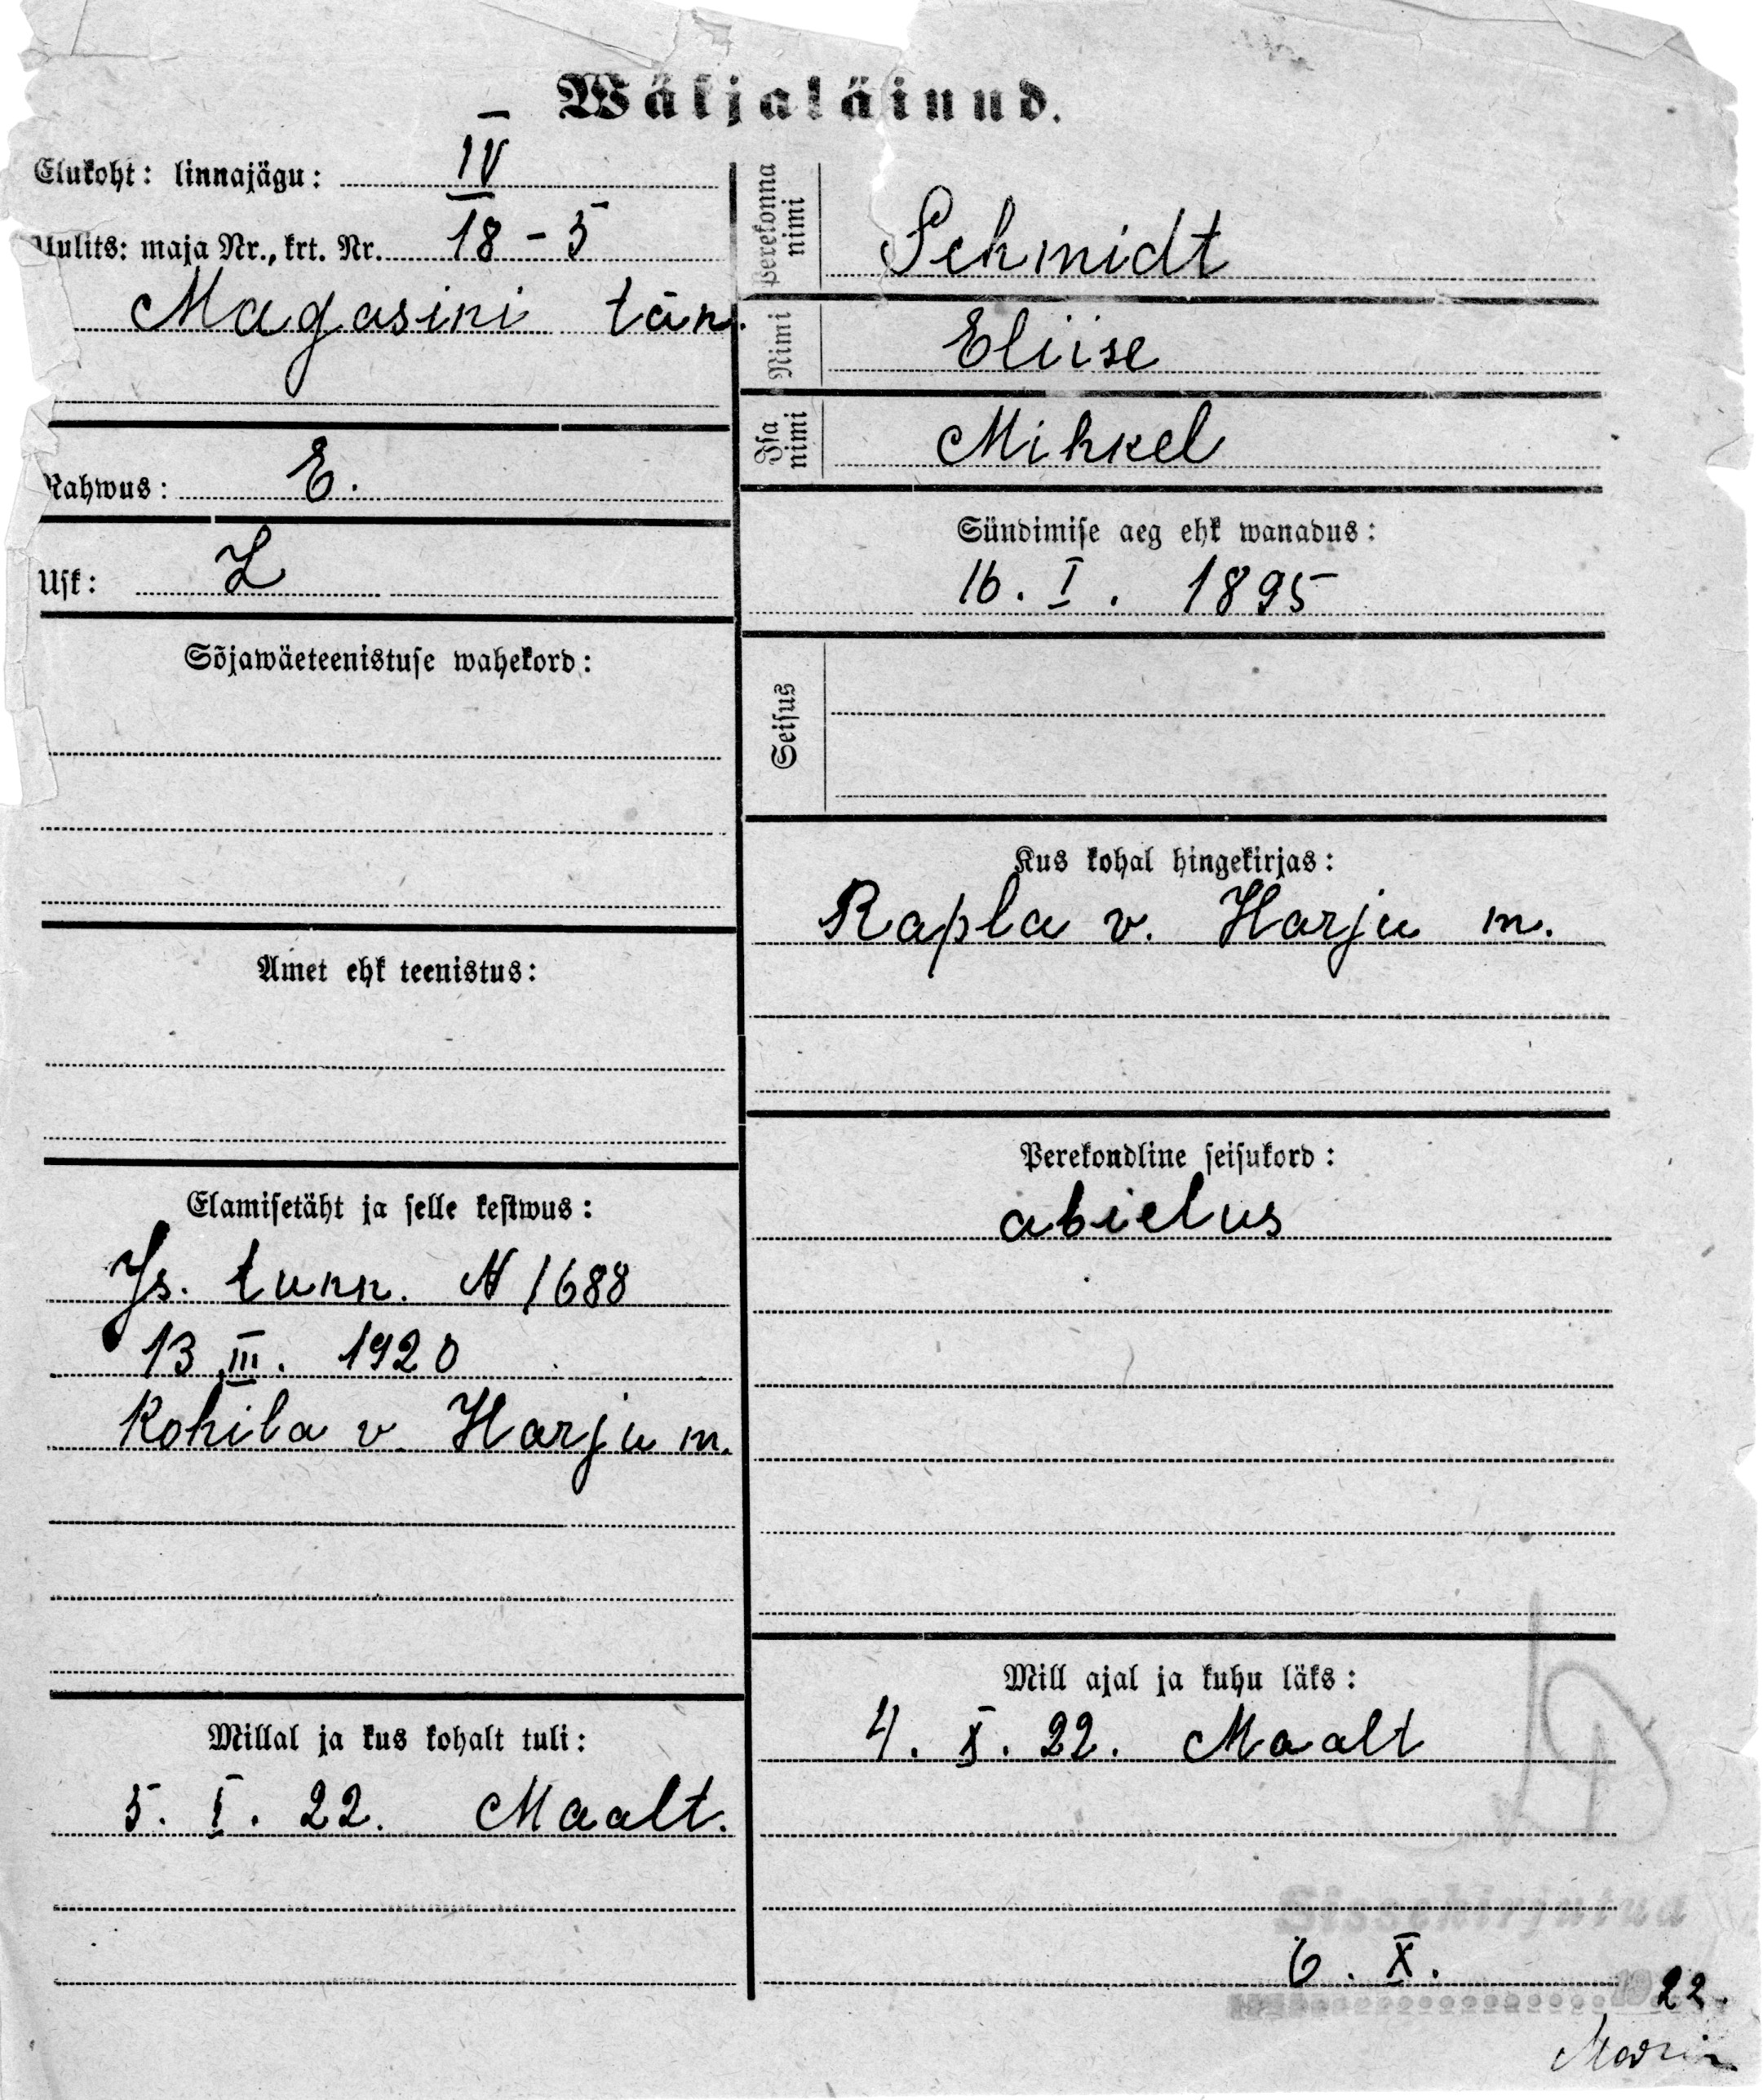 Wäljaläinud.
Elukoht: linnajägu: IV
Uulits: maja Nr., krt. Nr. 18 - 5
Magasini tän.
Rahwus: E.
Usk: L
Sõjawäeteenistuse wahekord:
Amet ehk teenistus:
Elamisetäht ja selle kestwus:
Is. tunn. N 1688
13 III. 1920
Kohila v. Harju m.
Millal ja kus kohalt tuli:
5. I. 22. Maalt.
Perekonna nimi Schmidt
Nimi Eliise
Isa nimi Mihkel
Sündimise aeg ehk wanadus:
16. I. 1895
Seisus
Kus kohal hingekirjas:
Rapla v. Harju m.
Perekondline seisukord:
abielus
Mill ajal ja kuhu läks:
4. X. 22. Maalt
Sissekirjutud
6. X.
1922.